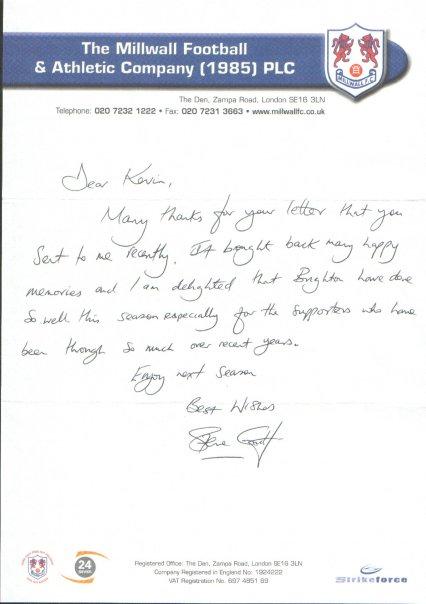 The Millwall Football
& Athletic Company (1985) PLC
MILLWALL F.C.
The Den, Zampa Road, London SE16 3LN
Telephone: 020 7232 1222 • Fax: 020 7231 3663 • www.millwallfc.co.uk
Dear Kevin,
Many thanks for your letter that you
sent to me recently. It brought back many happy
memories and I am delighted that Brighton have done
so well this season especially for the supporters who have
been through so much over recent years.
Enjoy next season
Best Wishes
Steve
24
seven
Registered Office: The Den, Zampa Road, London SE16 3LN
Company Registered in England No: 1924222
VAT Registration No. 697 4851 69
Strikeforce